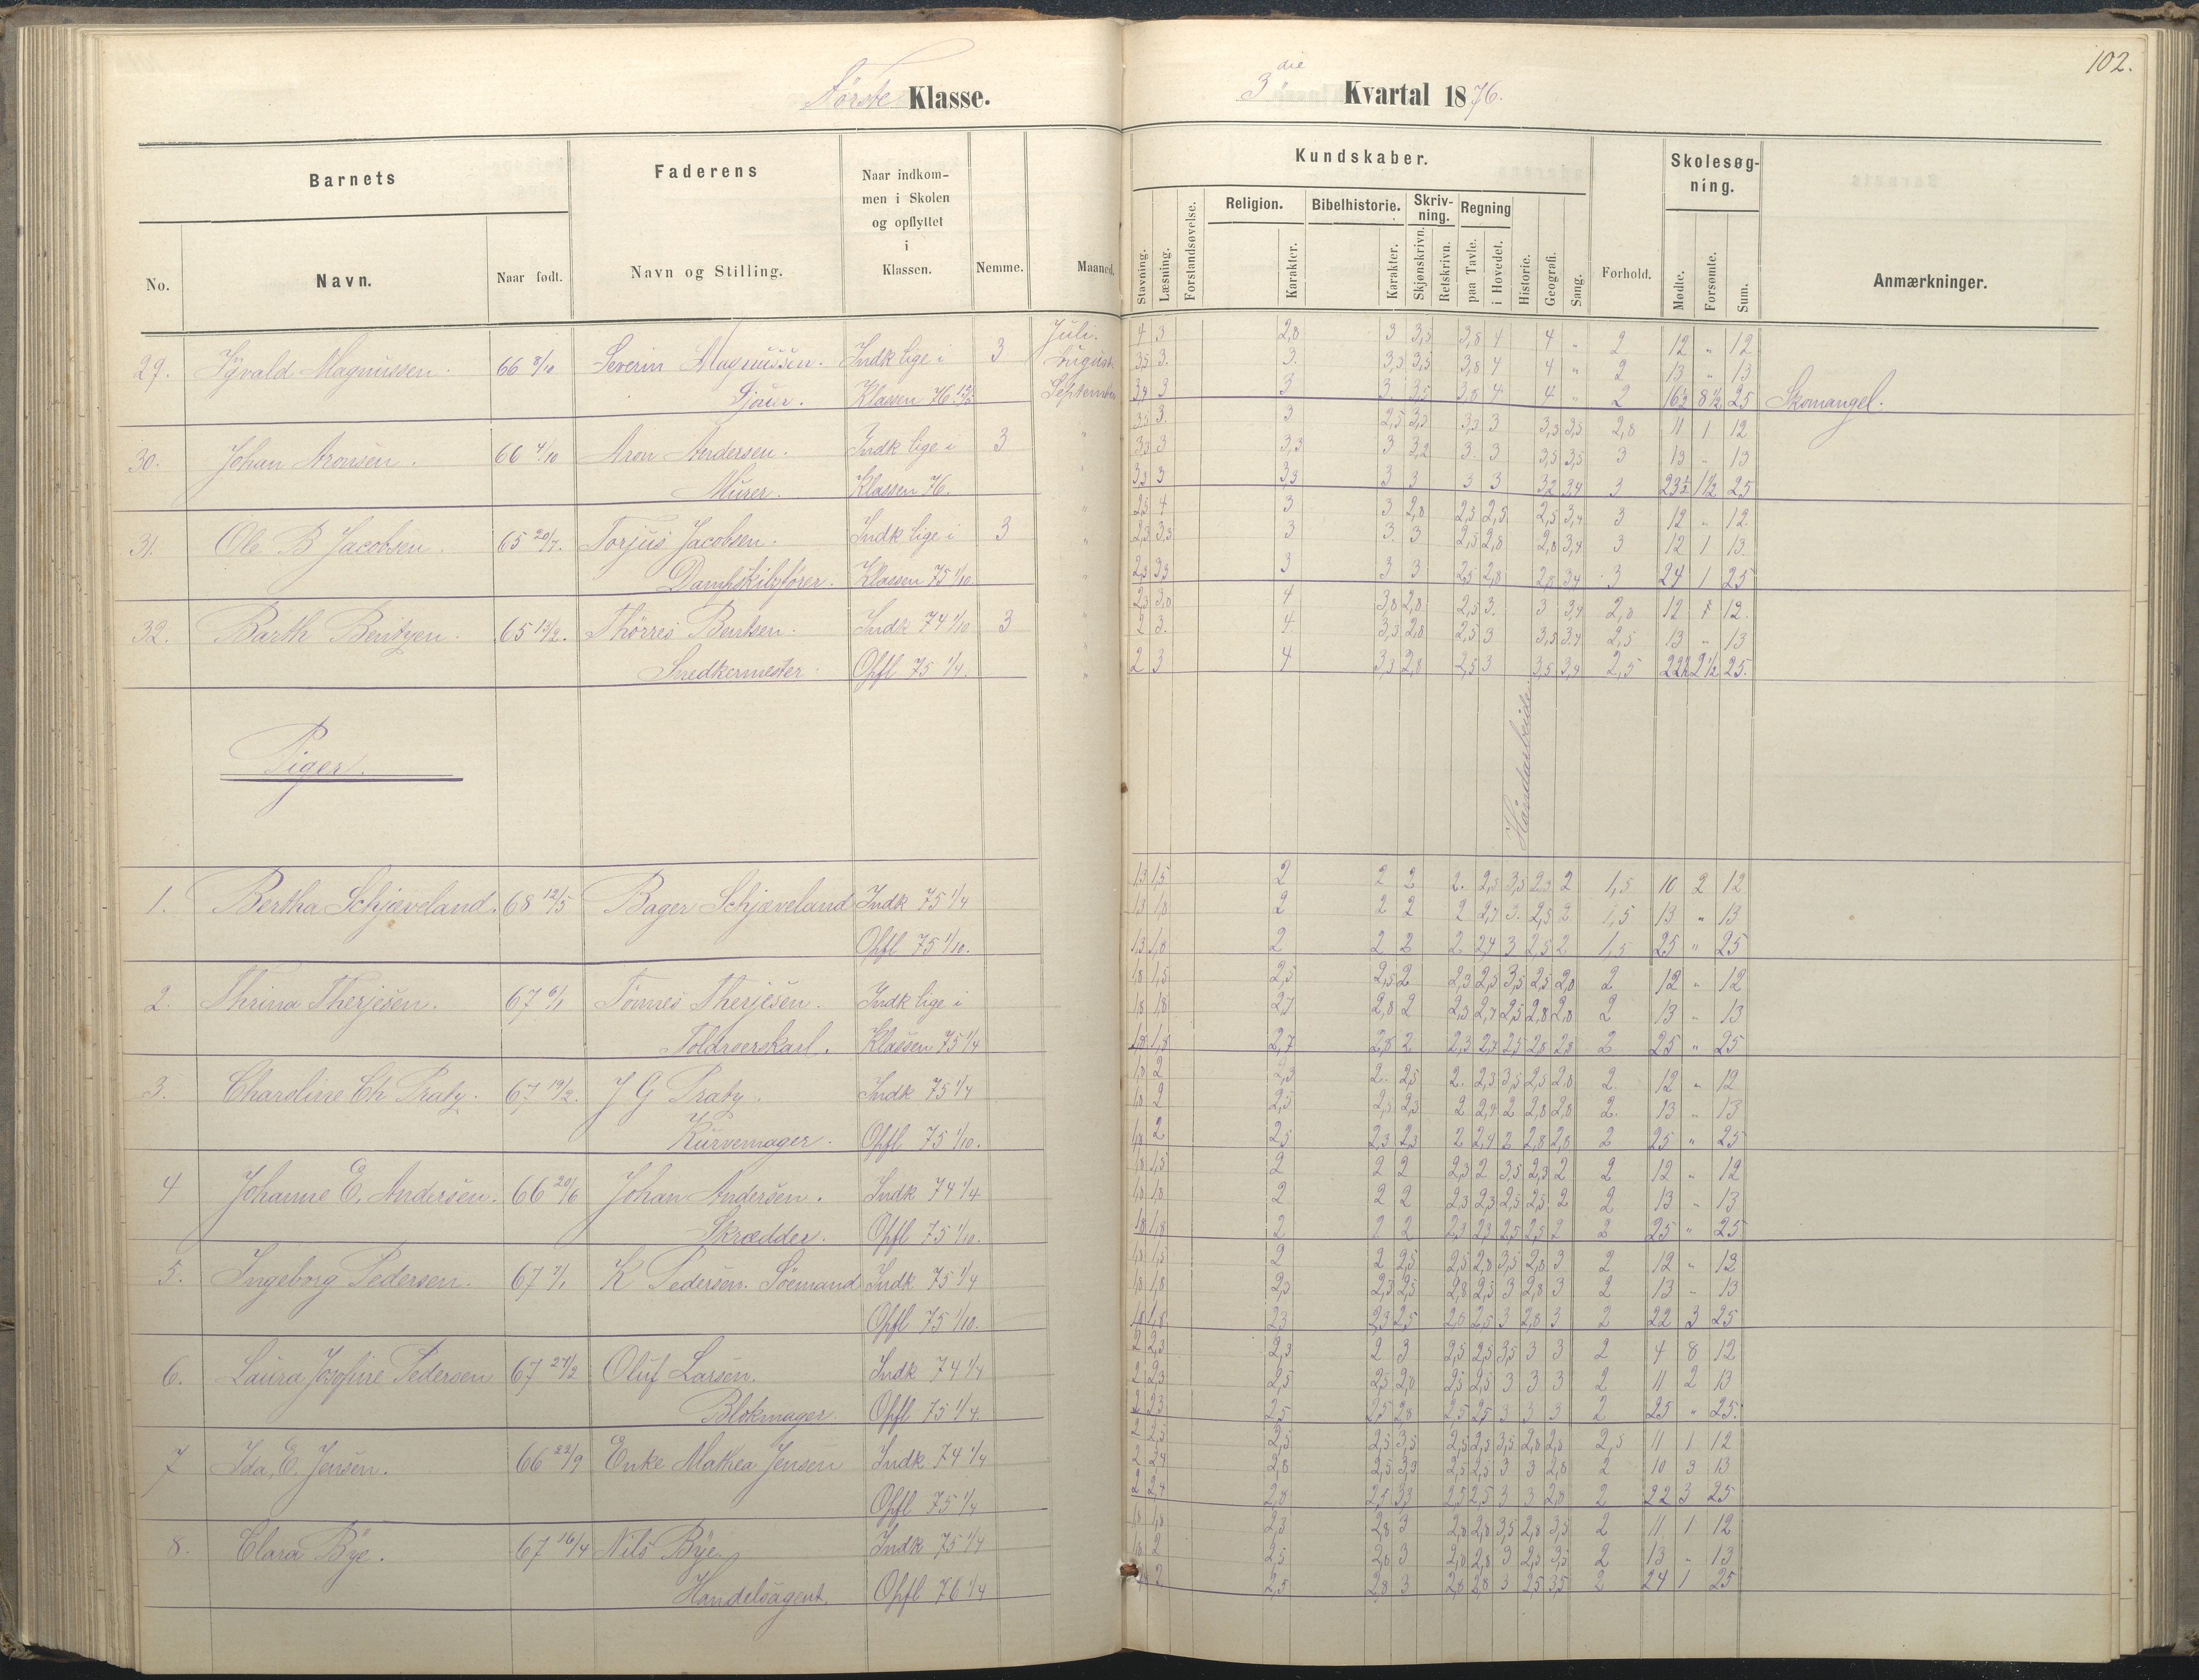 102.
Første Klasse.
3 die Kvartal 1876.
Barnets
Faderens
Naar indkom-
men i Skolen
og opflyttet
i
Klassen.
Nemme.
Maaned.
No.
Navn.
Naar født.
Navn og Stilling.
Kundskaber.
Skolesøg-
ning.
Stavning.
Læsning.
Forstandsøvelse.
Religion.
Karakter.
Bibelhistorie.
Karakter.
Skriv-
ning.
Skjønskrivn.
Retskrivn.
Regning
paa Tavle.
i Hovedet.
Historie.
Geografi.
Sang.
Forhold.
Mødte.
Forsømte.
Sum.
Anmærkninger.
29. Sigvald Magnussen. 66 8/10 Severin Magnussen. Indk lige i 3 Juli. 4 3 2,8 3 3,5 3,8 4 4 " 2 12 " 12
August 3,5 3. 3. 3,5 3,5 3,8 4 4 " 2 13 " 13
Sjouer. Klassen 76 September 3,8 3 3 3. 3,5 3,8 4 4 " 2 16½ 8½ 25 Skomangel.
30. Johan Aronsen. 66 4/10 Aron Andersen. Indk lige i 3 " 3,5 3. 3 2,5 3,5 3,3 3 3,5 3,5 2,8 11 1 12
3,3 3 3,3 3 3,2 3. 3 3,5 3,5 3 13 " 13
Murer. Klassen 76. " 3,3 3 3,3 3 3 3 3 3,2 3,4 3 23½ 1½ 25
31. Ole B Jacobsen. 65 20/7. Torjus Jacobsen. Indk lige i 3 " 2,5 4 3 3 2,8 2,5 2,5 2,5 3,4 3 12 " 12.
2,3 3,3 3 3. 3 2,5 2,8 2,8 3,4 3 12 1 13
Dampskibsfører. Klassen 75 1/10 " 2,3 3,3 3 3 3 2,5 2,8 2,8 3,4 3 24 1 25
32. Barth Bentzen. 65 13/2. Thørres Bentsen. Indk 74 1/10 3 " 2,3 3,0 4 3,8 2,8 2,5 3. 3 3,4 2,8 12 " 12.
2 3. 4. 3,3 2,8 2,5 3 3,5 3,4 2,5 13 " 13
Snedkermester. Opfl 75 1/4. " 2 3 4 3,3 2,8 2,5 3 3,5 3,4 2,5 22½ 2½ 25.
Piger.
Haandarbeide
1. Bertha Schjæveland. 68 12/5 Bager Schjæveland Indk 75 1/4 1,3 1,5 2 2 2 2. 2,3 3,5 2,3 2 1,5 10 2 12
1,3 1,8 2 2 2 2 2,3 3. 2,5 2 1,5 13 " 13
Opfl 75 1/10. 1,3 1,8 2 2 2 2 2,4 3 2,5 2 1,5 25 " 25
2. Thrina Therjesen. 67 6/1 Tønnes Therjesen. Indk lige i 1,8 1,5 2,5 2,5 2 2,3 2,5 3,5 2,5 2,0 2 12 " 12
1,8 1,8 2,7 2,8 2 2,3 2,7 2,5 2,8 2,8 2 13 " 13
Toldroerskarl. Klassen 75 1/4 1,8 1,8 2,7 2,8 2 2,3 2,7 2,5 2,8 2,8 2 25 " 25
3. Charoline Ch Praty. 67 19/2. J G Praty. Indk 75 1/4 1,8 2 2,3 2. 2,5 2. 2,3 3,5 2,5 2,0 2. 12 " 12
1,8 2 2,5 2,3 2,3 2 2,4 2 2,8 2,8 2. 13 " 13
Kurvemager. Opfl 75 1/10. 1,8 2 2,5 2,3 2,3 2 2,4 2 2,8 2,8 2 25 " 25
4 Johanne E. Andersen. 66 20/6 Johan Andersen. Indk 74 1/4 1,8 1,5 2 2 2 2,3 2 3,5 2,3 2 2 12 " 12
1,8 1,8 2 2 2 2,3 2,3 2,5 2,5 2 2 13 " 13
Skrædder. Opfl 75 1/10. 1,8 1,8 2 2 2 2,3 2,3 2,5 2,5 2 2 25 " 25
5. Ingeborg Pedersen. 67 7/1 K Pedersen. Søemand Indk 75 1/4 1,8 1,5 2 2 2,5 2,5 2,8 3,5 2,8 3 2 12 " 13
1,8 1,8 2,3 2,3 2,5 2,8 2,5 3 2,8 3 2 13 " 13
Opfl 75 1/10. 1,8 1,8 2,3 2,3 2,5 2,8 2,5 3 2,8 3 2 22 3 25
6. Laura Josefine Pedersen 67 27/2 Oluf Larsen. Indk 74 1/4 2 2,3 2,3 2 3 2,5 2,5 3,5 3 3 2 4 8 12
2 2,3 2,5 2,5 2,8 2,5 2,5 3 3 3 2 11 2 13
Blokmager. Opfl 75 1/4. 2 2,3 2,5 2,5 2,8 2,5 2,5 3 3 3 2 25 " 25.
7 Ida, E. Jensen. 66 22/9 Enke Mathea Jensen Indk 74 1/4 2 2,5 2,5 2,5 3,5 2,5 2,5 3,5 2,8 2,8 2,5 11 1 12
2 2,4 2,8 2,5 3,3 2,5 2,5 3 3 2,8 2 10 3 13
Opfl 75 1/4 2 2,4 2,8 2,5 3,3 2,5 2,5 3 3 2,8 2 22 3 25
8. Clara Bÿe. 67 16/4 Nils Bÿe. Indk 75 1/4 1,8 1,8 2,3 2,8 3 2,8 2,8 3,5 2,8 3,5 2 11 1 12
1,8 2 2,5 2,8 3 2,8 2,8 3 2,5 3,5 2 13 " 13
Handelsagent. Opfl 76 1/4 2 2,5 2,8 3 2,8 2,8 3 2,5 3,5 2 24 1 25